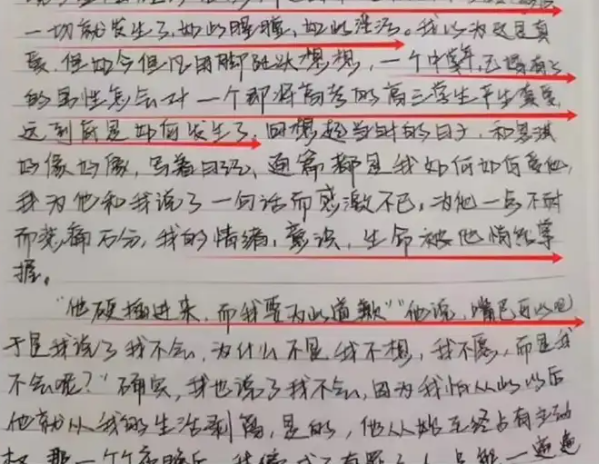 一切就发生了,如此朦胧,如此淫污。我以为这是真
爱,但如今但凡用脚趾头想想,一个中年,已婚有子
的男性怎么会对一个即将高考的高三学生产生真爱
这到底是如何发生了,回想起当时的日子,和思琪
好像好像,写着日记,通篇都是我如何如何爱他,
我为他和我说了一句话而感激不已,为他一点不耐
而悲痛万分,我的情绪,意识,生命被他悄然掌
握。
"他硬插进来,而我要为此道歉""他说,嘴巴可以吧
于是我说了我不会,为什么不是我不想,我不愿,而是我
不会呢?"确实,我也说了我不会,因为我怕从此以后
他就从我的生活剥离,是的,他从始至终占有主动
权,那一个个夜晚后,